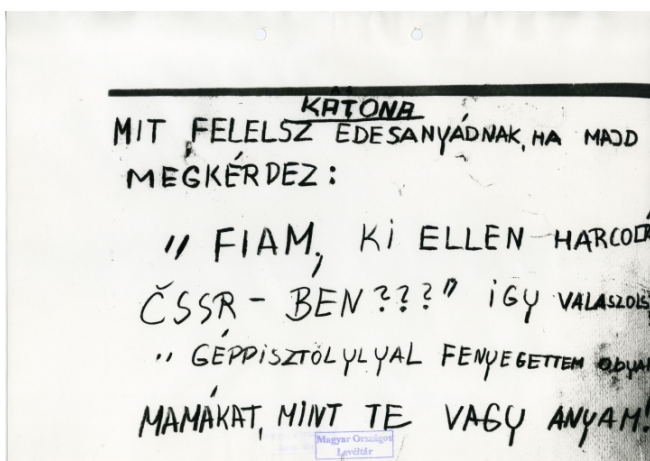 KATONA
MIT FELELSZ ÉDESANYÁDNAK, HA MAJD
MEGKÉRDEZ:
" FIAM, Ki ELLEN HARCOL
ČSSR - BEN???" iGY VALASZOLS
" GÉPPISZTOLYLYAL FENYEGETTEM OLYA
MAMÁKAT, MINT TE VAGY ANYAM!
Magyar Országos
Levéltár